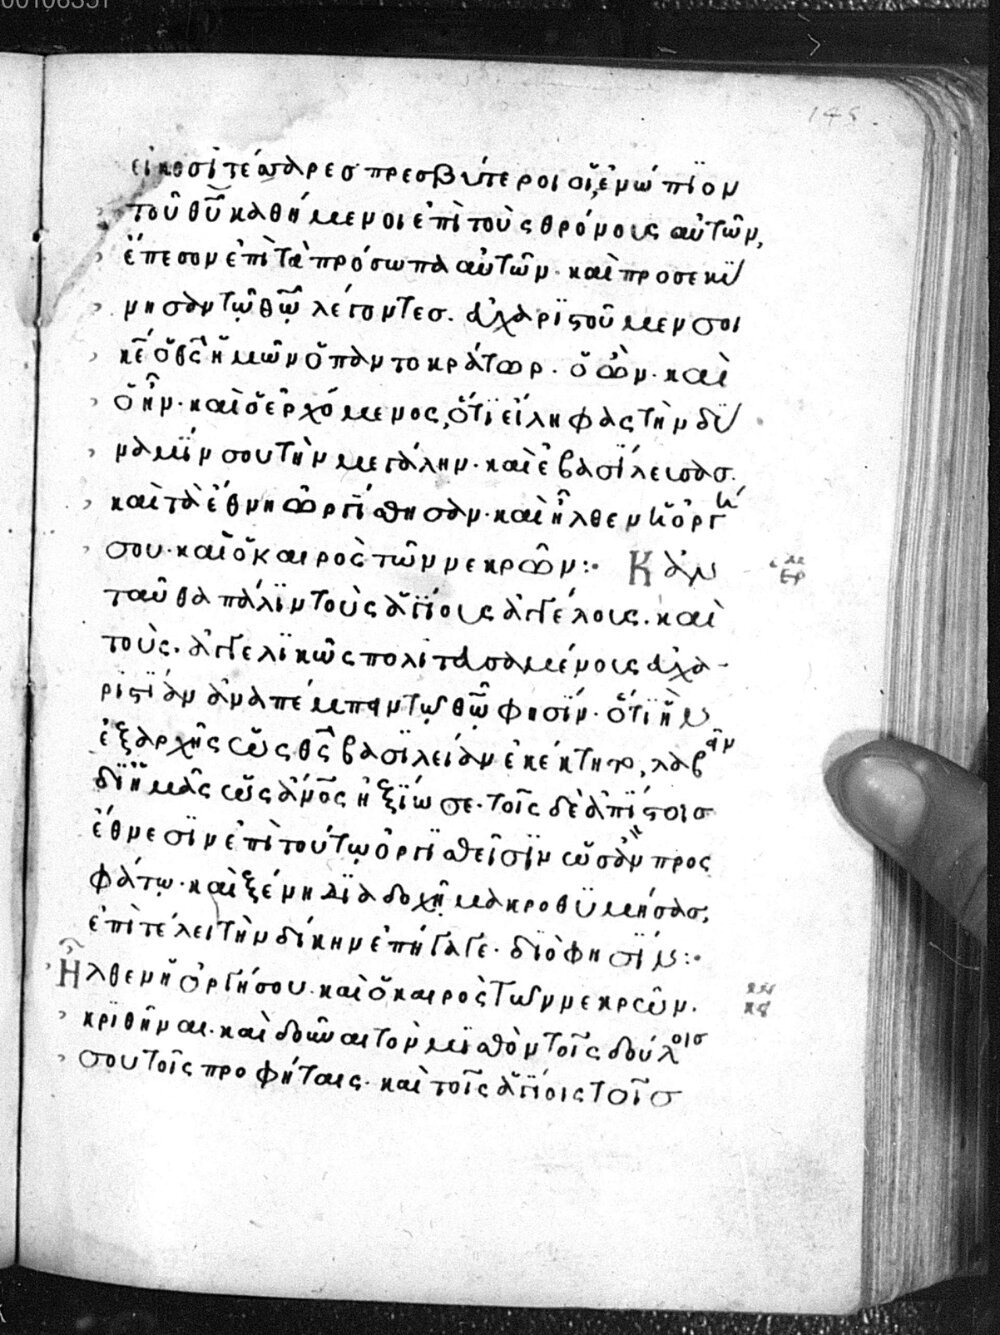 00106351
145.
εἰκοσιτέσσαρες πρεσβύτεροι οἱ ἐνώπϊον
τοῦ θυ̅ καθήμενοι ἐπὶ τοὺς θρόνους αὐτῶν,
ἔπεσον ἐπὶ τὰ πρόσωπα αὐτῶν· καὶ προσεκύ
νησαν τῷ θω̅ λέγοντες. εὐχαριστοῦμεν σοι
κε̅ ὁ θς̅ ἡμῶν ὁ παντοκράτωρ. ὁ ὢν· καὶ
ὁ ἦν· καὶ ὁ ἐρχόμενος, ὅτι εἴληφας τὴν δύ
ναμίν σου τὴν μεγάλην· καὶ ἐβασίλευσας.
καὶ τὰ ἔθνη ὠργίσθησαν· καὶ ἦλθεν ἡ ὀργή
σου· καὶ ὁ καιρὸς τῶν νεκρῶν:· Κἀν
ταῦθα πάλιν τοὺς ἁγίους ἀγγέλους. καὶ
τοὺς. ἀγγελϊκῶς πολιτευσαμένους εὐχα-
ριστίαν ἀναπέμπειν τῷ θω̅ φησίν· ὅτι ἣν
ἐξαρχῆς ὡς θς̅ βασϊλείαν ἐκέκτητο, λαβεῖν
δι ἡμᾶς ὡς ἄνος̅ ἠξίωσε· τοῖς δὲ ἀπίστοις
ἔθνεσϊν ἐπὶ τούτῳ ὀργισθεῖσϊν ὡς ἂν πρὸς
φάτῳ· καὶ ξένη διαδοχῇ μακροθυμήσας,
ἐπιτέλει τὴν δίκην ἐπήγαγε· διὸ φησίν:·
Ἦλθεν ἡ ὀργή σου· καὶ ὁ καιρὸς τῶν νεκρῶν.
κριθῆναι· καὶ δοῦναι τὸν μισθὸν τοῖς δούλοις
σου τοῖς προφήταις· καὶ τοῖς ἁγίοις τοῖς